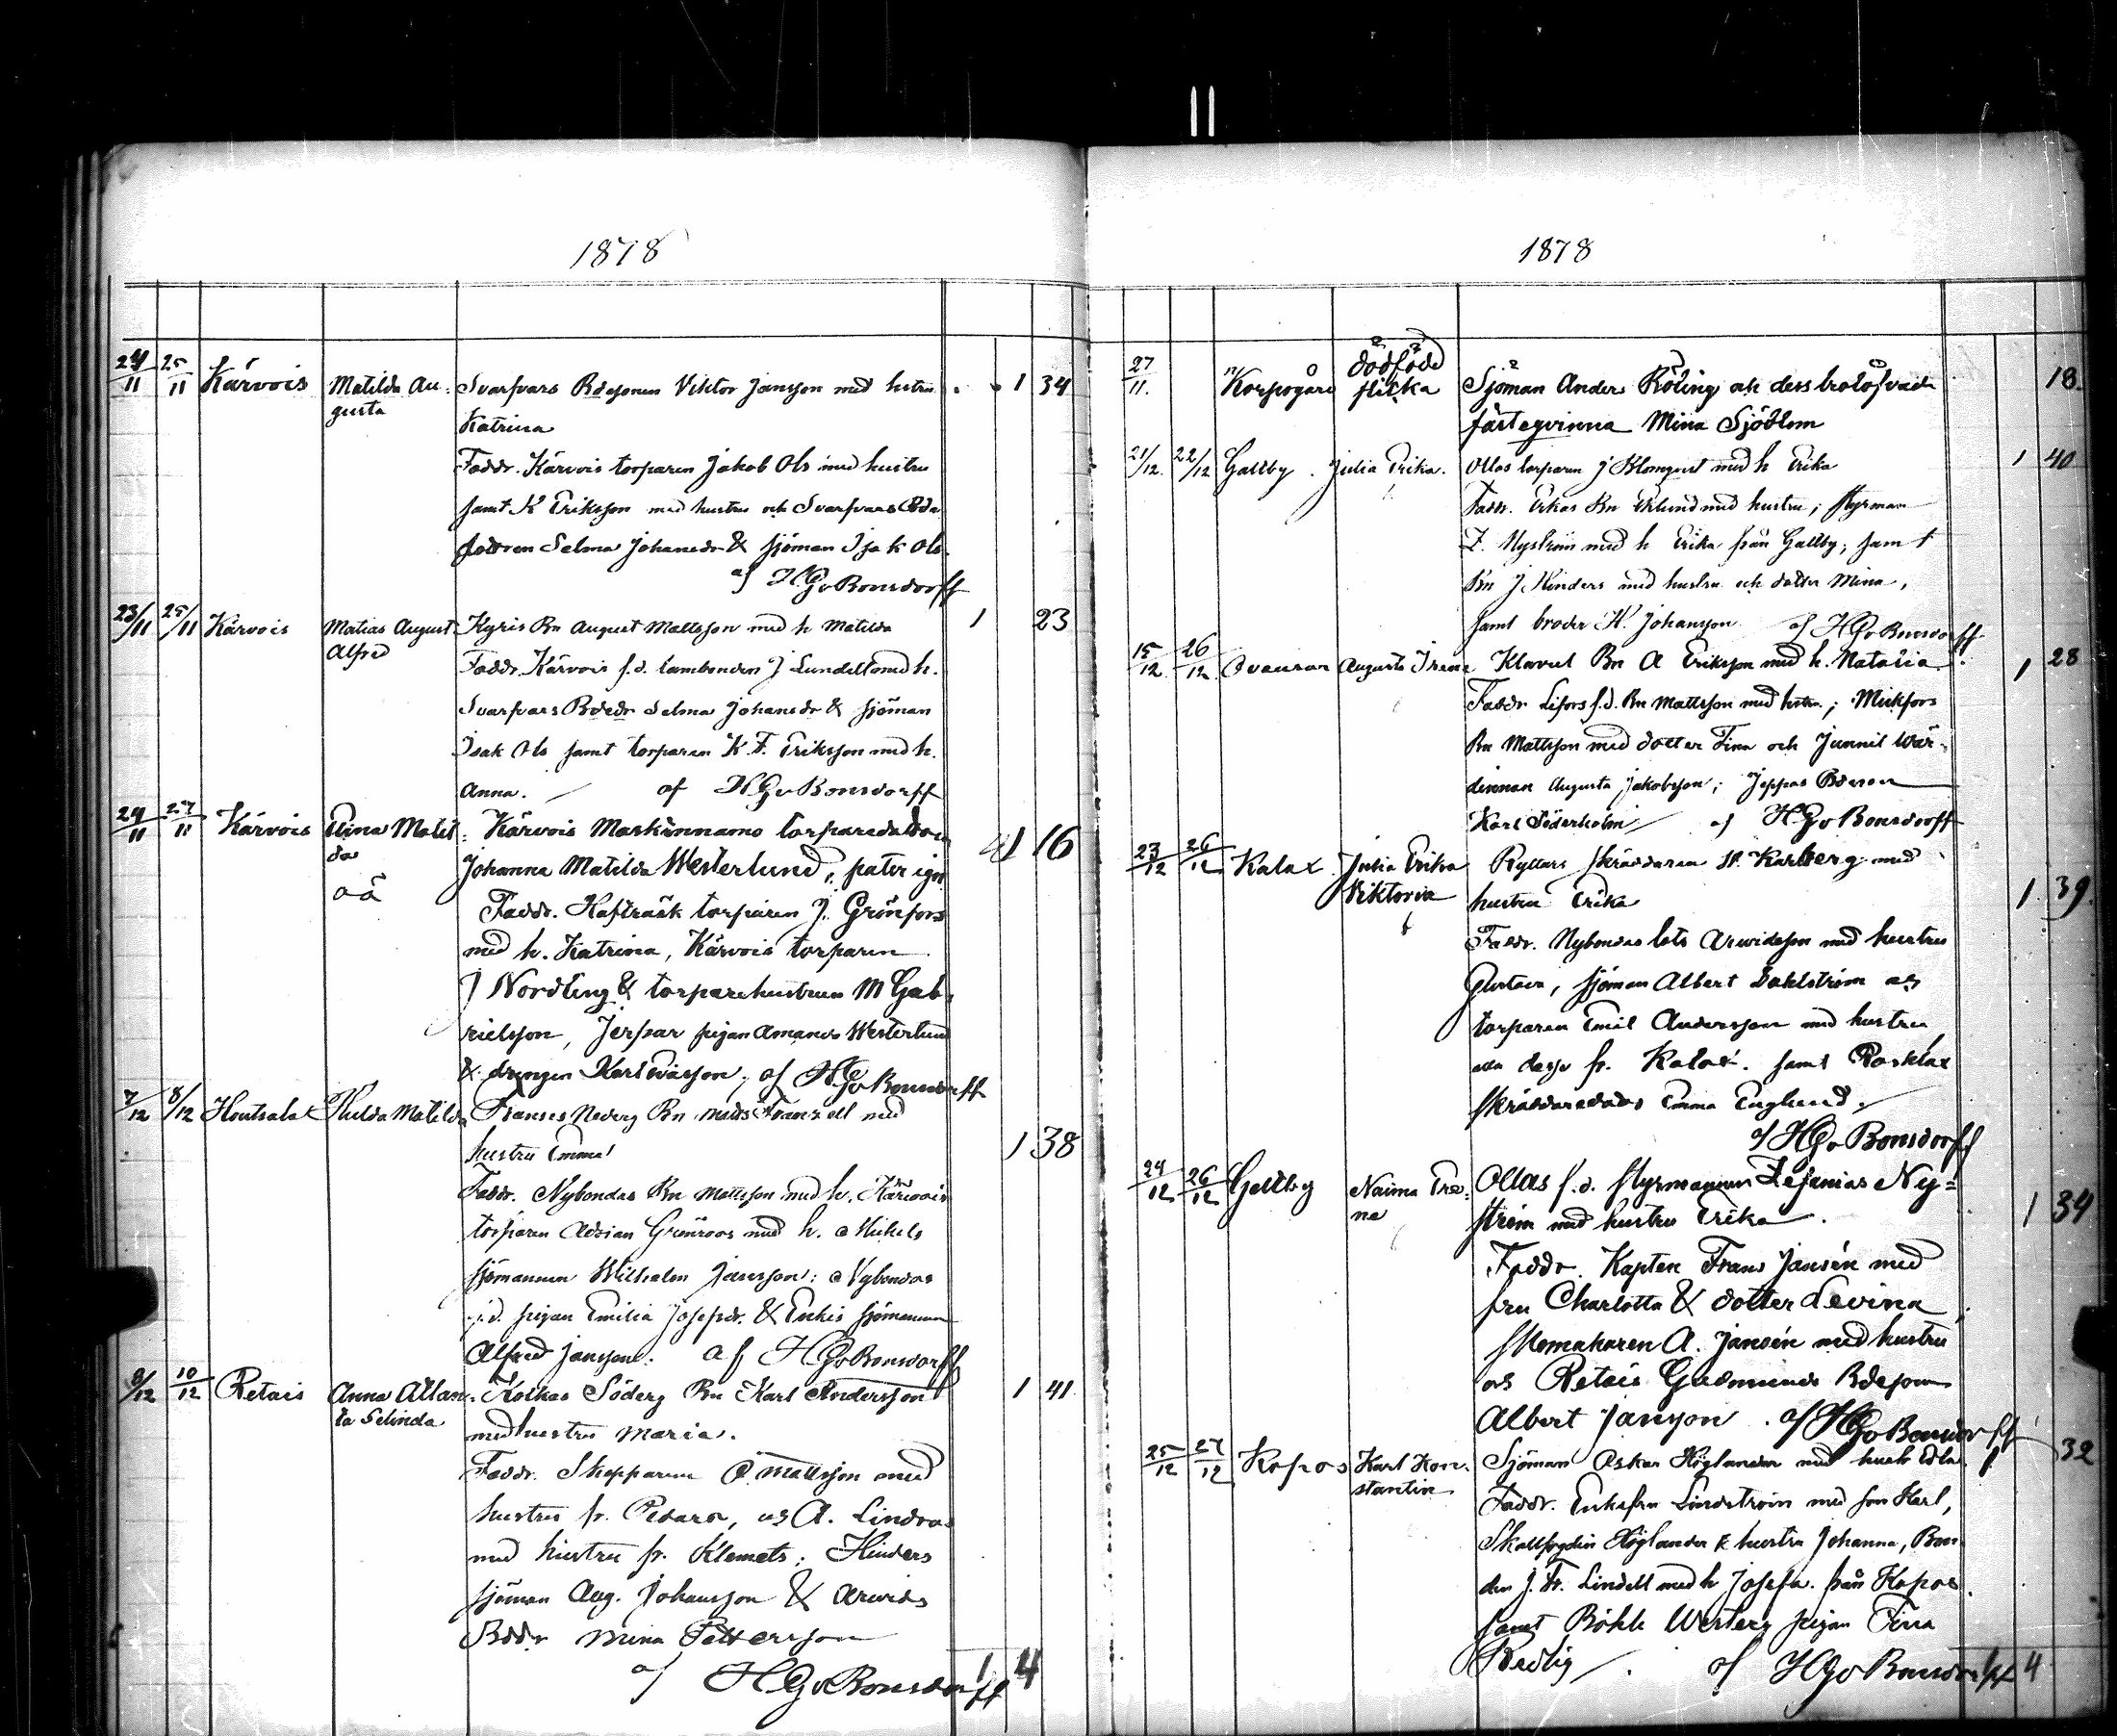 1878
24/11 25/11 Kärvois Matilda Au- Svarfvars Bdesonen Viktor Jansson med hstru 1 34
gusta Katrina
Faddr. Kärvois torparen Jakob Ols med hustru
samt K Eriksson med hustru och Svarfvars Bde
dottren Selma Johansdr & sjöman Isak Ols
af HGvBonsdorff
23/11 25/11 Kärvois Matias August Kyris Bn August Mattsson med h Matilda 1 23
Alfred Faddr. Kärvois f.d. landbonden J Lundell med h.
Svarfvars Bdedr Selma Johansdr & sjöman
Isak Ols samt torparen K.F. Eriksson med h.
Anna. af HGvBonsdorff
24/11 27/11 Kärvois Elina Matil- Kärvois Maskinnamo torparedottren 1 16
da Johanna Matilda Westerlund, pater ign
oä Faddr. Kafträsk torparen J. Grönfors
med h. Katrina, Kärvois torparen
J Nordling & torparehustrun M Gab-
rielsson, Jerpar pigan Amanda Westerlund
& drengen Karl af HGvBonsdorff
7/12 8/12 Houtsala Hulda Matilda Franses Nederg Bn Mats Franzell med
hustru Emma 1 38
Faddr. Nybondas Bn Mattsson med h. Kärvois
torparen Adrian Grönroos med h. Mickels
sjömannen Wilhelm Jansson: Nybondas
f.d. pigan Emilia Josefsdr. & Enkis sjömannen
Alfred Jansson. af HGvBonsdorff
8/12 10/12 Retais Anna Atlan- Kolkas Söderg Bn Karl Andersson 1 41
ta Selinda med hustru Maria.
Faddr. Skepparen Mattsson med
hustru fr. , os A. Lindroos
med hustru fr. Klemets; Hinders
sjöman Aug. Johansson & Arvids
Bddr Mina Pettersson
af HGvBonsdorff 1 4
1878
27/11. Korpogård dödfödd Sjöman Anders Röling och dess trolofvade 18.
flicka fästeqvinna Mina Sjöblom
21/12. 22/12 Galtby. Julia Erika. Ollas torparen J Blomqvist med h Erika 1 40
Faddr. Erkas Bn Eklund med hustru; styrman
Z. Nyström med h Erika från Galtby; samt
Bn J. Hinders med hustru och dotter Mina,
samt broder K. Johansson af HGvBonsdorff
15/12. 26/12. Augusta Irene Klavul Bn A Eriksson med h. Natalia. 1 28
Faddr Lifors f.d. Bn Mattsson med hstru; Mickfors
Bn Mattsson med dotter Fina och Junnil Wär-
dinnan Augusta Jakobsson; Jeppas Bdeson
Karl Söderholm af HGvBonsdorff
23/12 26/12 Kalax Julia Erika Ryttars skräddaren K. Karlberg med
Viktoria hustru Erika 1 39.
Faddr. Nybondas lots Arvidsson med hustru
Gustava, sjöman Albert Dahlström os
torparen Emil Andersson med hustru
alla desse fr. Kalax. samt Rosklax
skräddaredotr Emma Englund.
af HGvBonsdorff
24/12 26/12 Galtby Naima Ire- Ollas f.d. styrmannen Zefanias Ny=
ne ström med hustru Erika. 1 34
Faddr. Kapten Frans Jansén med
fru Charlotta & dotter Levina
skomakaren A. Jansén med hustru
os Retais Gudmunds Bdeson
Albert Jansson. af HGvBonsdorff
25/12 27/12 Kopos Karl Kon- Sjöman Oskar Höglander med hust. Edla. 1 32
stantin Faddr. Enkefru Lindström med son Karl,
Skallfogden Höglander & hustru Johanna, Bon-
den J. Fr. Lindell med h Josefa. från Kopos
samt Böhle Westerg pigan Fina
Redlig. af HGvBonsdorff 4